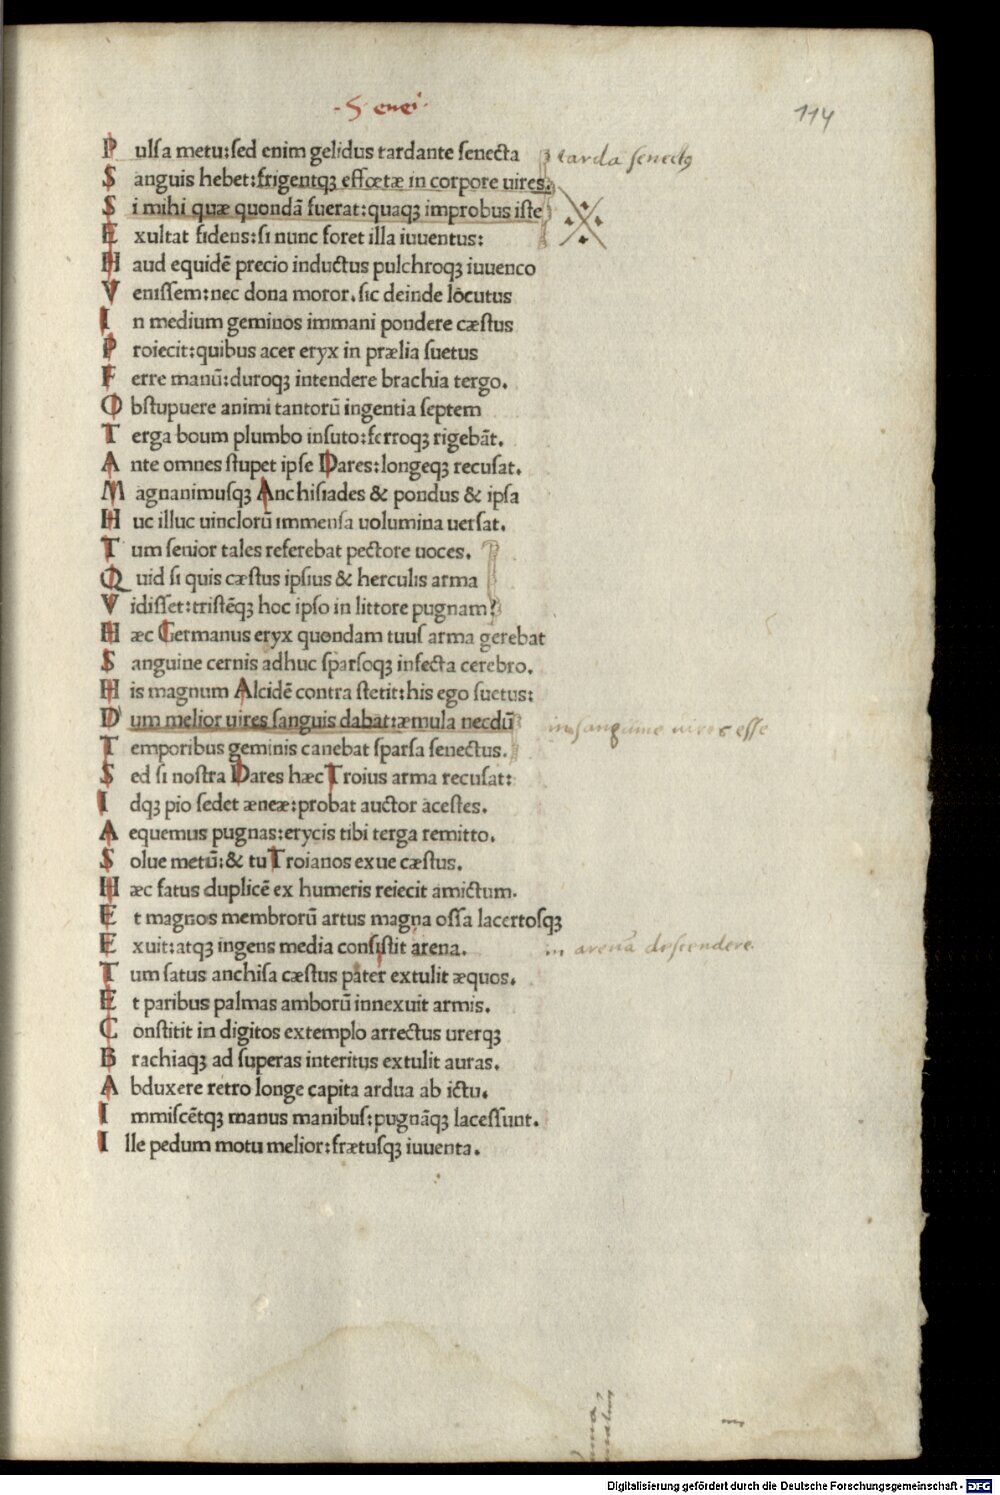 ·5· enei·
114
Pulſa metu:ſed enim gelidus tardante ſenecta
tarda ſenectus
Sanguis hebet:frigentqꝫ effœtæ in corpore uires.
Si mihi quæ quondā fuerat:quaqꝫ improbus iſte
Exultat fidens:ſi nunc foret illa iuuentus:
Haud equidē precio inductus pulchroqꝫ iuuenco
Veniſſem:nec dona moror.ſic deinde locutus
In medium geminos immani pondere cæſtus
Proiecit:quibus acer eryx in prælia ſuetus
Ferre manū:duroqꝫ intendere brachia tergo.
Obſtupuere animi tantorū ingentia ſeptem
Terga boum plumbo inſuto:ferroqꝫ rigebāt.
Ante omnes ſtupet ipſe Dares:longeqꝫ recuſat.
Magnanimuſqꝫ Anchiſiades & pondus & ipſa
Huc illuc uinclorū immenſa uolumina uerſat.
Tum ſenior tales referebat pectore uoces.
Quid ſi quis cæſtus ipſius & herculis arma
Vidiſſet:triſtēqꝫ hoc ipſo in littore pugnam?
Hæc Germanus eryx quondam tuuſ arma gerebat
Sanguine cernis adhuc ſparſoqꝫ infecta cerebro.
His magnum Alcidē contra ſtetit:his ego ſuetus:
Dum melior uires ſanguis dabat:æmula necdū
in ſanguine uires eſſe
Temporibus geminis canebat ſparſa ſenectus.
Sed ſi noſtra Dares hæc Troius arma recuſat:
Idqꝫ pio ſedet æneæ:probat auctor aceſtes.
Aequemus pugnas:erycis tibi terga remitto.
Solue metū:& tu Troianos exue cæſtus.
Hæc fatus duplicē ex humeris reiecit amictum.
Et magnos membrorū artus magna oſſa lacertoſqꝫ
Exuit:atqꝫ ingens media conſiſtit arena.
in arenā deſcendere
Tum ſatus anchiſa cæſtus pater extulit æquos.
Et paribus palmas amborū innexuit armis.
Conſtitit in digitos extemplo arrectus uterqꝫ
Brachiaqꝫ ad ſuperas interitus extulit auras.
Abduxere retro longe capita ardua ab ictu.
Immiſcētqꝫ manus manibuſ:pugnāqꝫ laceſſunt.
Ille pedum motu melior:frætuſqꝫ iuuenta.
Digitalisierung gefördert durch die Deutsche Forschungsgemeinschaft - DFG